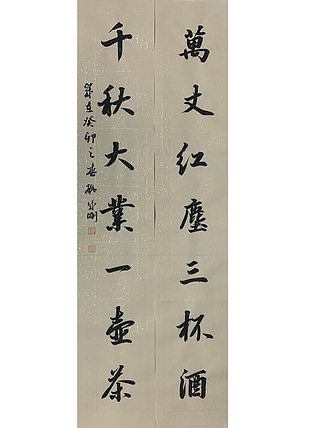 萬丈红塵三杯酒
千秋大業一壺茶
歲在癸卯之春